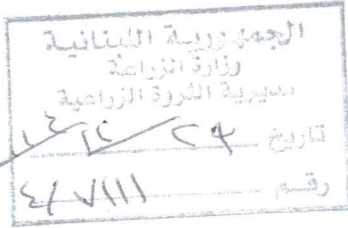 الجمهورية اللبنانية
وزارة الزراعة
مديرية الثروة الزراعية
تاريخ
رقم ٤/٧١١١